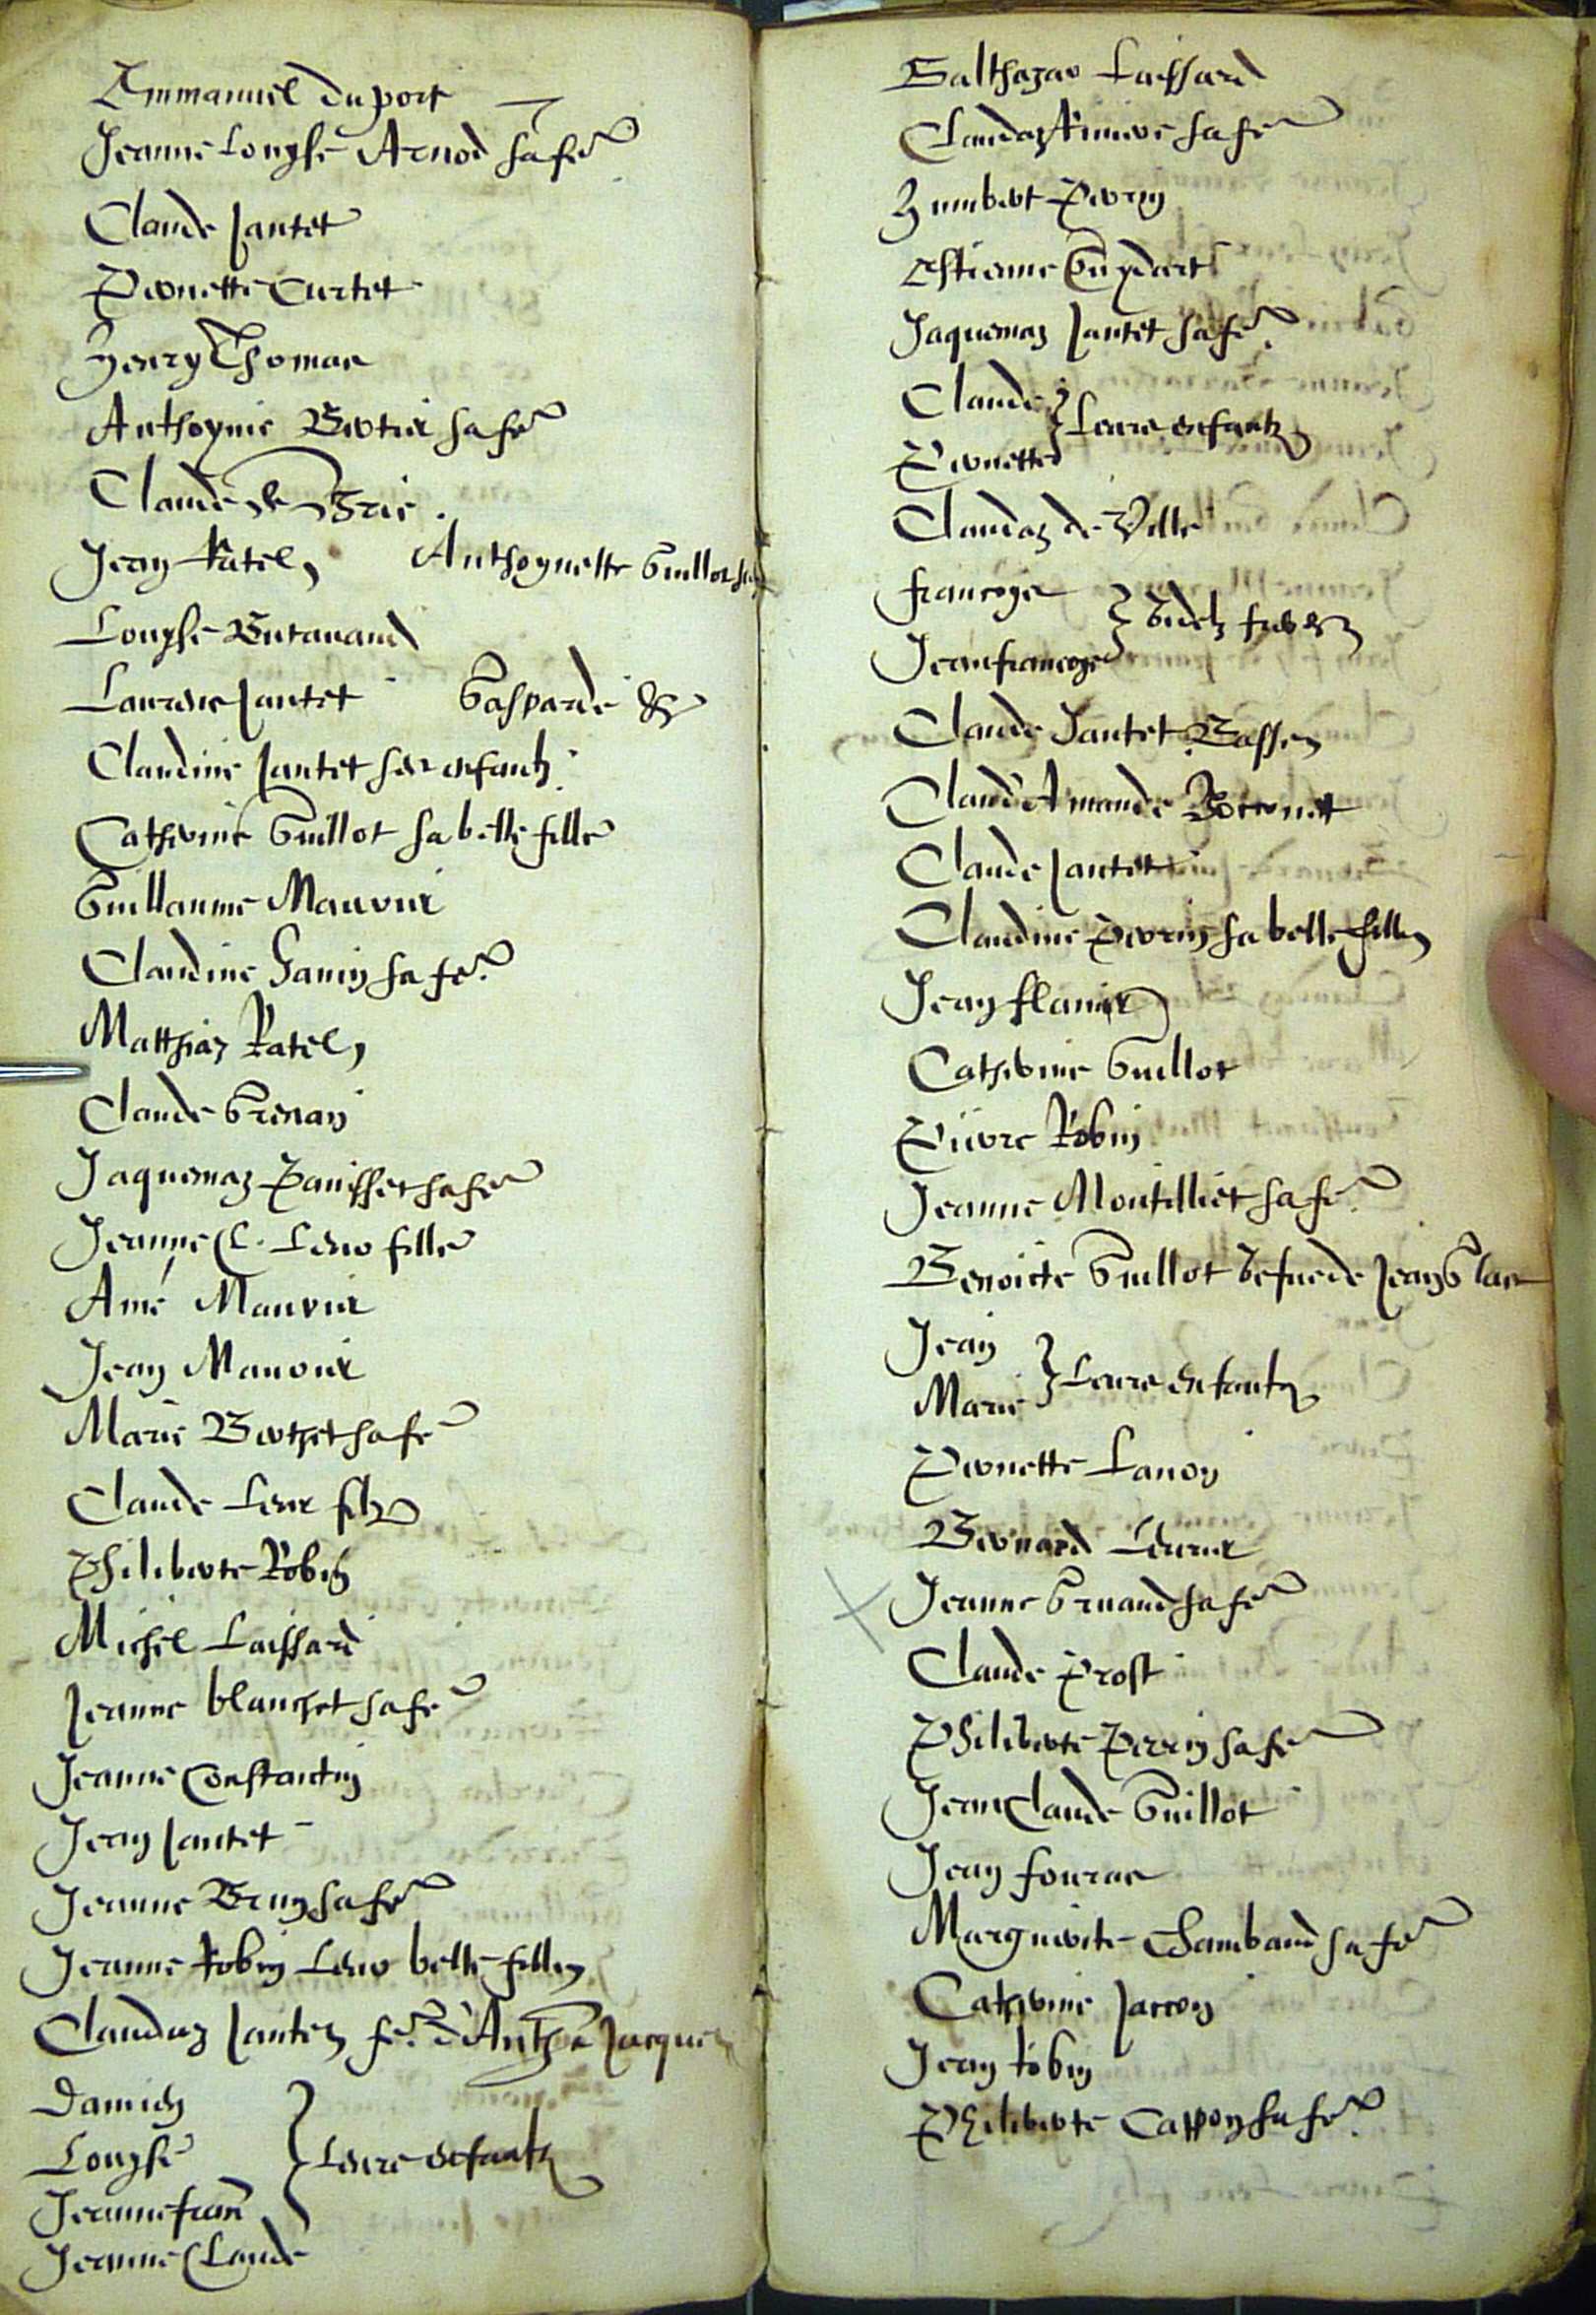 Emmanuel du port
Jeanne Louyse Arnod sa fe
Claude Jantet
Pernette Curtet
Henry Thomas
Anthoynie Bertier sa fe
Claude de Brie
Jean Ratel, Anthoynette Guillot
Louyse Butavand
Laurens Jantet Gasparde &
Claudine Jantet ses enfantz
Catherine Guillot sa belle fille
Guillaume Mauvier
Claudine Janin sa fe
Matthiaz Ratel,
Claude Grenan
Jaquemaz Panisset sa fe
Jeanne Cl. Leur fille
Amé Mauvier
Jean Mauvier
Marie Berthet sa fe
Claude Leur filz
Philiberte Robin
Michel Laissard
Jeanne blanchet sa fe
Jeanne Constantin
Jean Jantet
Jeanne Brun sa fe
Jeanne Robin Leur belle fille
Claudaz Jantez fe d'Anthe Jacque
Damien
Louyse
Leurs enfantz
Jeannefran
Jeanne Claude
Balthazar Laissard
Claudaz sa fe
Humbert Perrin
Estienne Guydart
Jaquemaz Jantet sa fe
Claude
Leurs enfantz
Pernette
Claudaz de Ville
francoyse
Jeanfrancoys
Claude Jantet Basset
Claud'Amande
Claude Jantet
Claudine Perrin sa belle fille
Jean flanier
Catherine Guillot
Pierre Robin
Jeanne Montelliet sa fe
Benoicte Guillot vefue de Jean Glas
Jean
Leurs enfantz
Marie
Pernette Lanon
Bernard
Jeanne Gruaud sa fe
Claude Prost
Philiberte Perrin sa fe
Jean Claude Guillot
Jean fourne
Marguerite Chambaud sa fe
Catherine Jarcon
Jean Robin
Philiberte Cappon sa fe